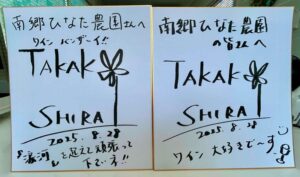 南郷ひなた農園さんへ
ワイン バンザーイ!!
TAKAKO
SHIRAI
2025.8.28
を超えて頑張って
下さい!!
南郷ひなた農園
の皆さんへ
TAKAKO
SHIRAI
2025.8.28
ワイン 大好きで〜す